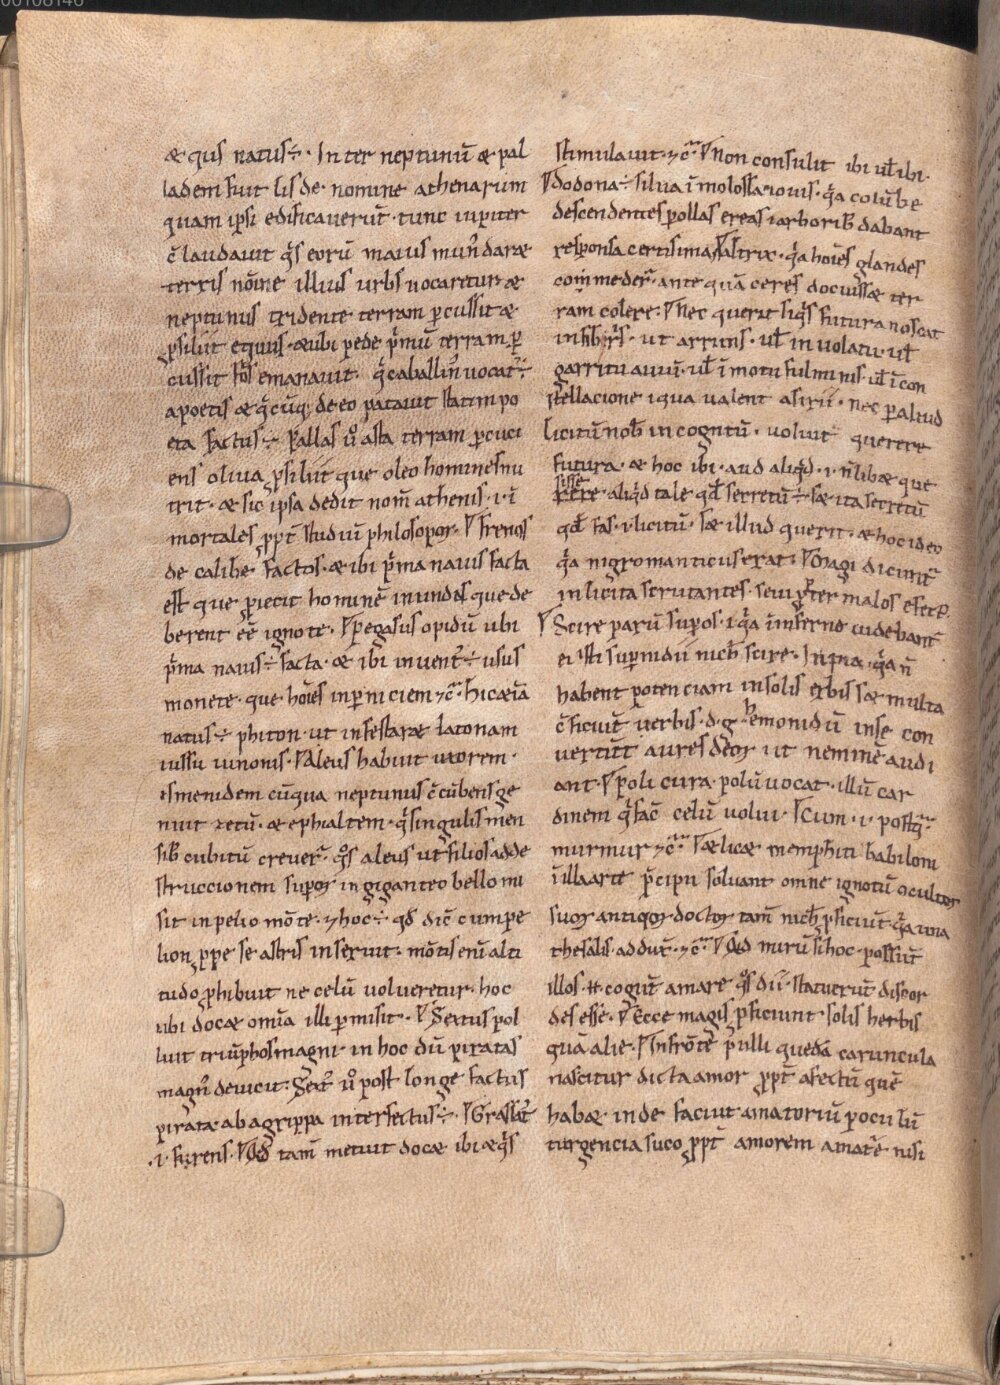 æ qus natus÷· Inter neptunū æ pal
ladem fuit lis de· nomine athenarum
quam ipsi edificauerūt· tunc iupiter
c̄ laudauit q̊s eorū maius mun̄ daræ
terris nōine illius urbs uocaretur æ
neptunus tridente terram p̄cussit æ
psiliit equus· æ ubi pede p̄mū terram p̄
cussit fōs emanauit· q̊ caballin̄ uocat᷑÷
a poetis æ q̊cūq; de eo patauit statim po
eta factus÷ Pallas u̇̊ asta terram p̄cuci
ens oliua psiliit que oleo homines nu
trit· æ sic ipsa dedit nom̄ athenis· i· ī
mortales ppt̄ studiū philosopoꝝ· Frenos
de calibe factos· æ ibi p̄ma nauis facta
est que pietit hominē in undas que de
berent ēē ignote· Pegasus opidū ubi
p̄ma nauis÷ facta· æ ibi inuent᷑÷ usus
monete· que hoīes in p̄niciem ⁊c̄· hic æiā
natus÷ phiton· ut infestaræ latonam
iussu iunonis· Aleus habuit uxorem·
ismenidem cū qua neptunus c̄cūbens ge
nuit &etū· æ ephialtem· q̊ singulis men
sib; cubitū creuer᷑· q̊s aleus ut filios adde
struccionem supoꝝ in giganteo bello mi
sit in pelio mōte· ⁊ hoc÷ qd̄ dic̄ cum pe
lion ppe se astris inseruit· mōtis enī alti
tudo phibuit ne celū uolueretur· hoc
ubi docæ omīa illi p̄misit· Sextus pol
luit triūphos magni· in hoc dū piratas
magn᷑ deuicit· Sext᷑ u̇̊ post longe factus
pirata· ab agrippa interfectus÷· Grassat᷑
·i· furens· Qd̄ tam̄ metuit docæ ibi æ q̊s
stimulauit· ⁊c̄ Non consulit ibi ul̄ ibi·
Dodona÷ silua ī molossa iouis· q̊a colūbe
descendentes p ollas ereas i arborib; dabant
responsa certissima/ Altrix· q̊a hoīes glandes
com̄meder᷑· ante quā ceres docuissæ ter
ram colere· Nec querit siq̊s futura noscat
in fibris· ut arruns· ul̄ in uolatu· ul̄
garritu auiū· ul̄ ī motu fulminis· ul̄ ī con
stellacione i qua ualent asirii· nec p̄ aliud
licitū nob̄ incognitū· uoluit querere
futura· æ hoc ibi· aud aliqd̄· i· n̄ libæ que
aliqd̄ tale qd̄ secretū÷· sæ ita secretū
qd̄ fas· i· licitū· sæ illud querit· æ hoc ideo
q̊a nigromanticus erat· Magi dicunt᷑
inlicita scrutantes· seu pter malos efect᷑·
Scire parū supos· i· q̊a īferne uidebant᷑
ei isti supni dii nich̄ scire· Inpia· q̊a n̄
habent potenciam in solis erbis sæ multa
c̄ficiūt uerbis· d· g· emonidū in se con
uertūt aures deoꝝ ut neminē audi
ant· Poli cura· polū uocat· illū car
dinem q̊ fac̄ celū uolui· Cum· i· postq̄
murmur ⁊c̄Ælicæ memphiti babiloni
ī illa arte p̄cipui soluant omne ignotū ocultos
suoꝝ antiquoꝝ doctoꝝ tam̄ nich̄ pficiūt q̊a una
thesalis addūt· ⁊c̄ Qd̄ mirū si hoc possūt
illos· ł cogūt amare q̊s dii· statuerūt discor
des esse· Ecce magis pficiunt solis herbis
quā alie· In frōte pulli quedā caruncula
nascitur dicta amor ppt̄ afectū quē
habæ inde faciūt amatoriū poculū
turgencia suco ppt̄ amorem amat᷑ē nisi